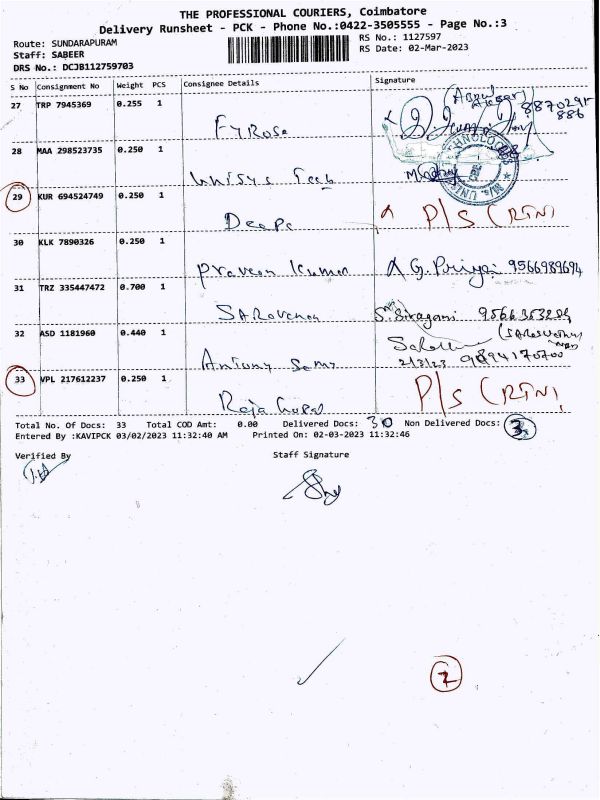 THE PROFESSIONAL COURIERS, Coimbatore
Delivery Runsheet - PCK - Phone No.:0422-3505555 - Page No.:3
Route: SUNDARAPURAM
RS No.: 1127597
Staff: SABEER
RS Date: 02-Mar-2023
DRS No.: DCJB112759703
S No Consignment No Weight PCS Consignee Details Signature
27 TRP 7945369 0.255 1
8870295
886
Fyrose
28 MAA 298523735 0.250 1
Unisys Tech
29 KUR 694524749 0.250 1
P/S (RTN)
Deepa
30 KLK 7890326 0.250 1
Praveen Kumar G. Priya 9566989694
31 TRZ 335447472 0.700 1
Saravanan
32 ASD 1181960 0.440 1
2/3/23 9894170700
Antony Samy
33 VPL 217612237 0.250 1
P/S (RTN)
Raja Gopal
Total No. Of Docs: 33 Total COD Amt: 0.00 Delivered Docs: 30 Non Delivered Docs: 3
Entered By :KAVIPCK 03/02/2023 11:32:40 AM Printed On: 02-03-2023 11:32:46
Verified By Staff Signature
2